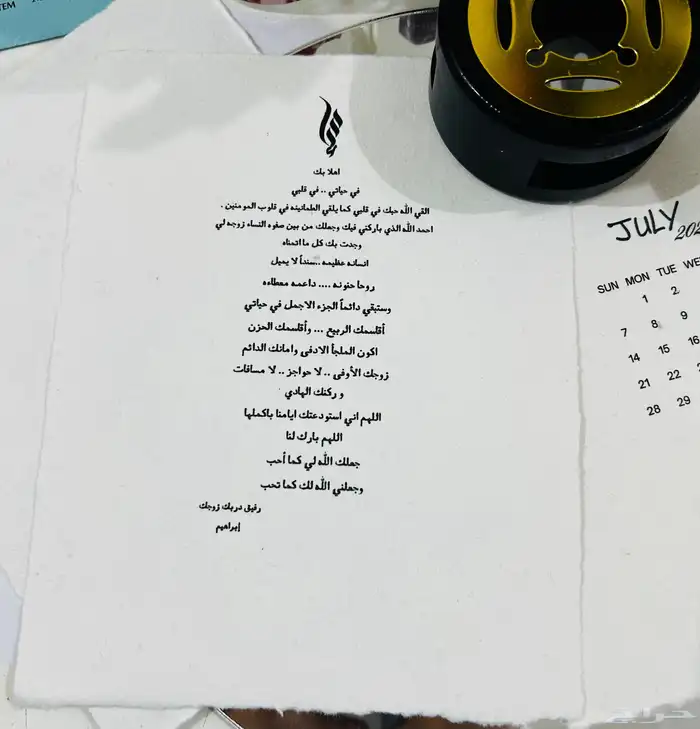 TEM
اهلا بك
في حياتي .. في قلبي
القي الله حبك في قلبي كما يلقي الطمانينه في قلوب المومنين .
احمد الله الذي باركني فيك وجعلك من بين صفوه النساء زوجه لي
وجدت بك كل ما اتمناه
انسانه عظيمه ..سنداً لا يميل
روحا حنونه .... داعمه معطاءه
وستبقي دائماً الجزء الاجمل في حياتي
أقاسمك الربيع ... وأقاسمك الحزن
اكون الملجأ الادفى وامانك الدائم
زوجك الأوفى .. لا حواجز .. لا مسافات
و ركنك الهادي
اللهم اني استودعتك ايامنا باكملها
اللهم بارك لنا
جعلك الله لي كما أحب
وجعلني الله لك كما تحب
رفيق دربك زوجك
إبراهيم
JULY 202
SUN MON TUE WE
1 2
7 8 9
14 15 16
21 22
28 29
حراج